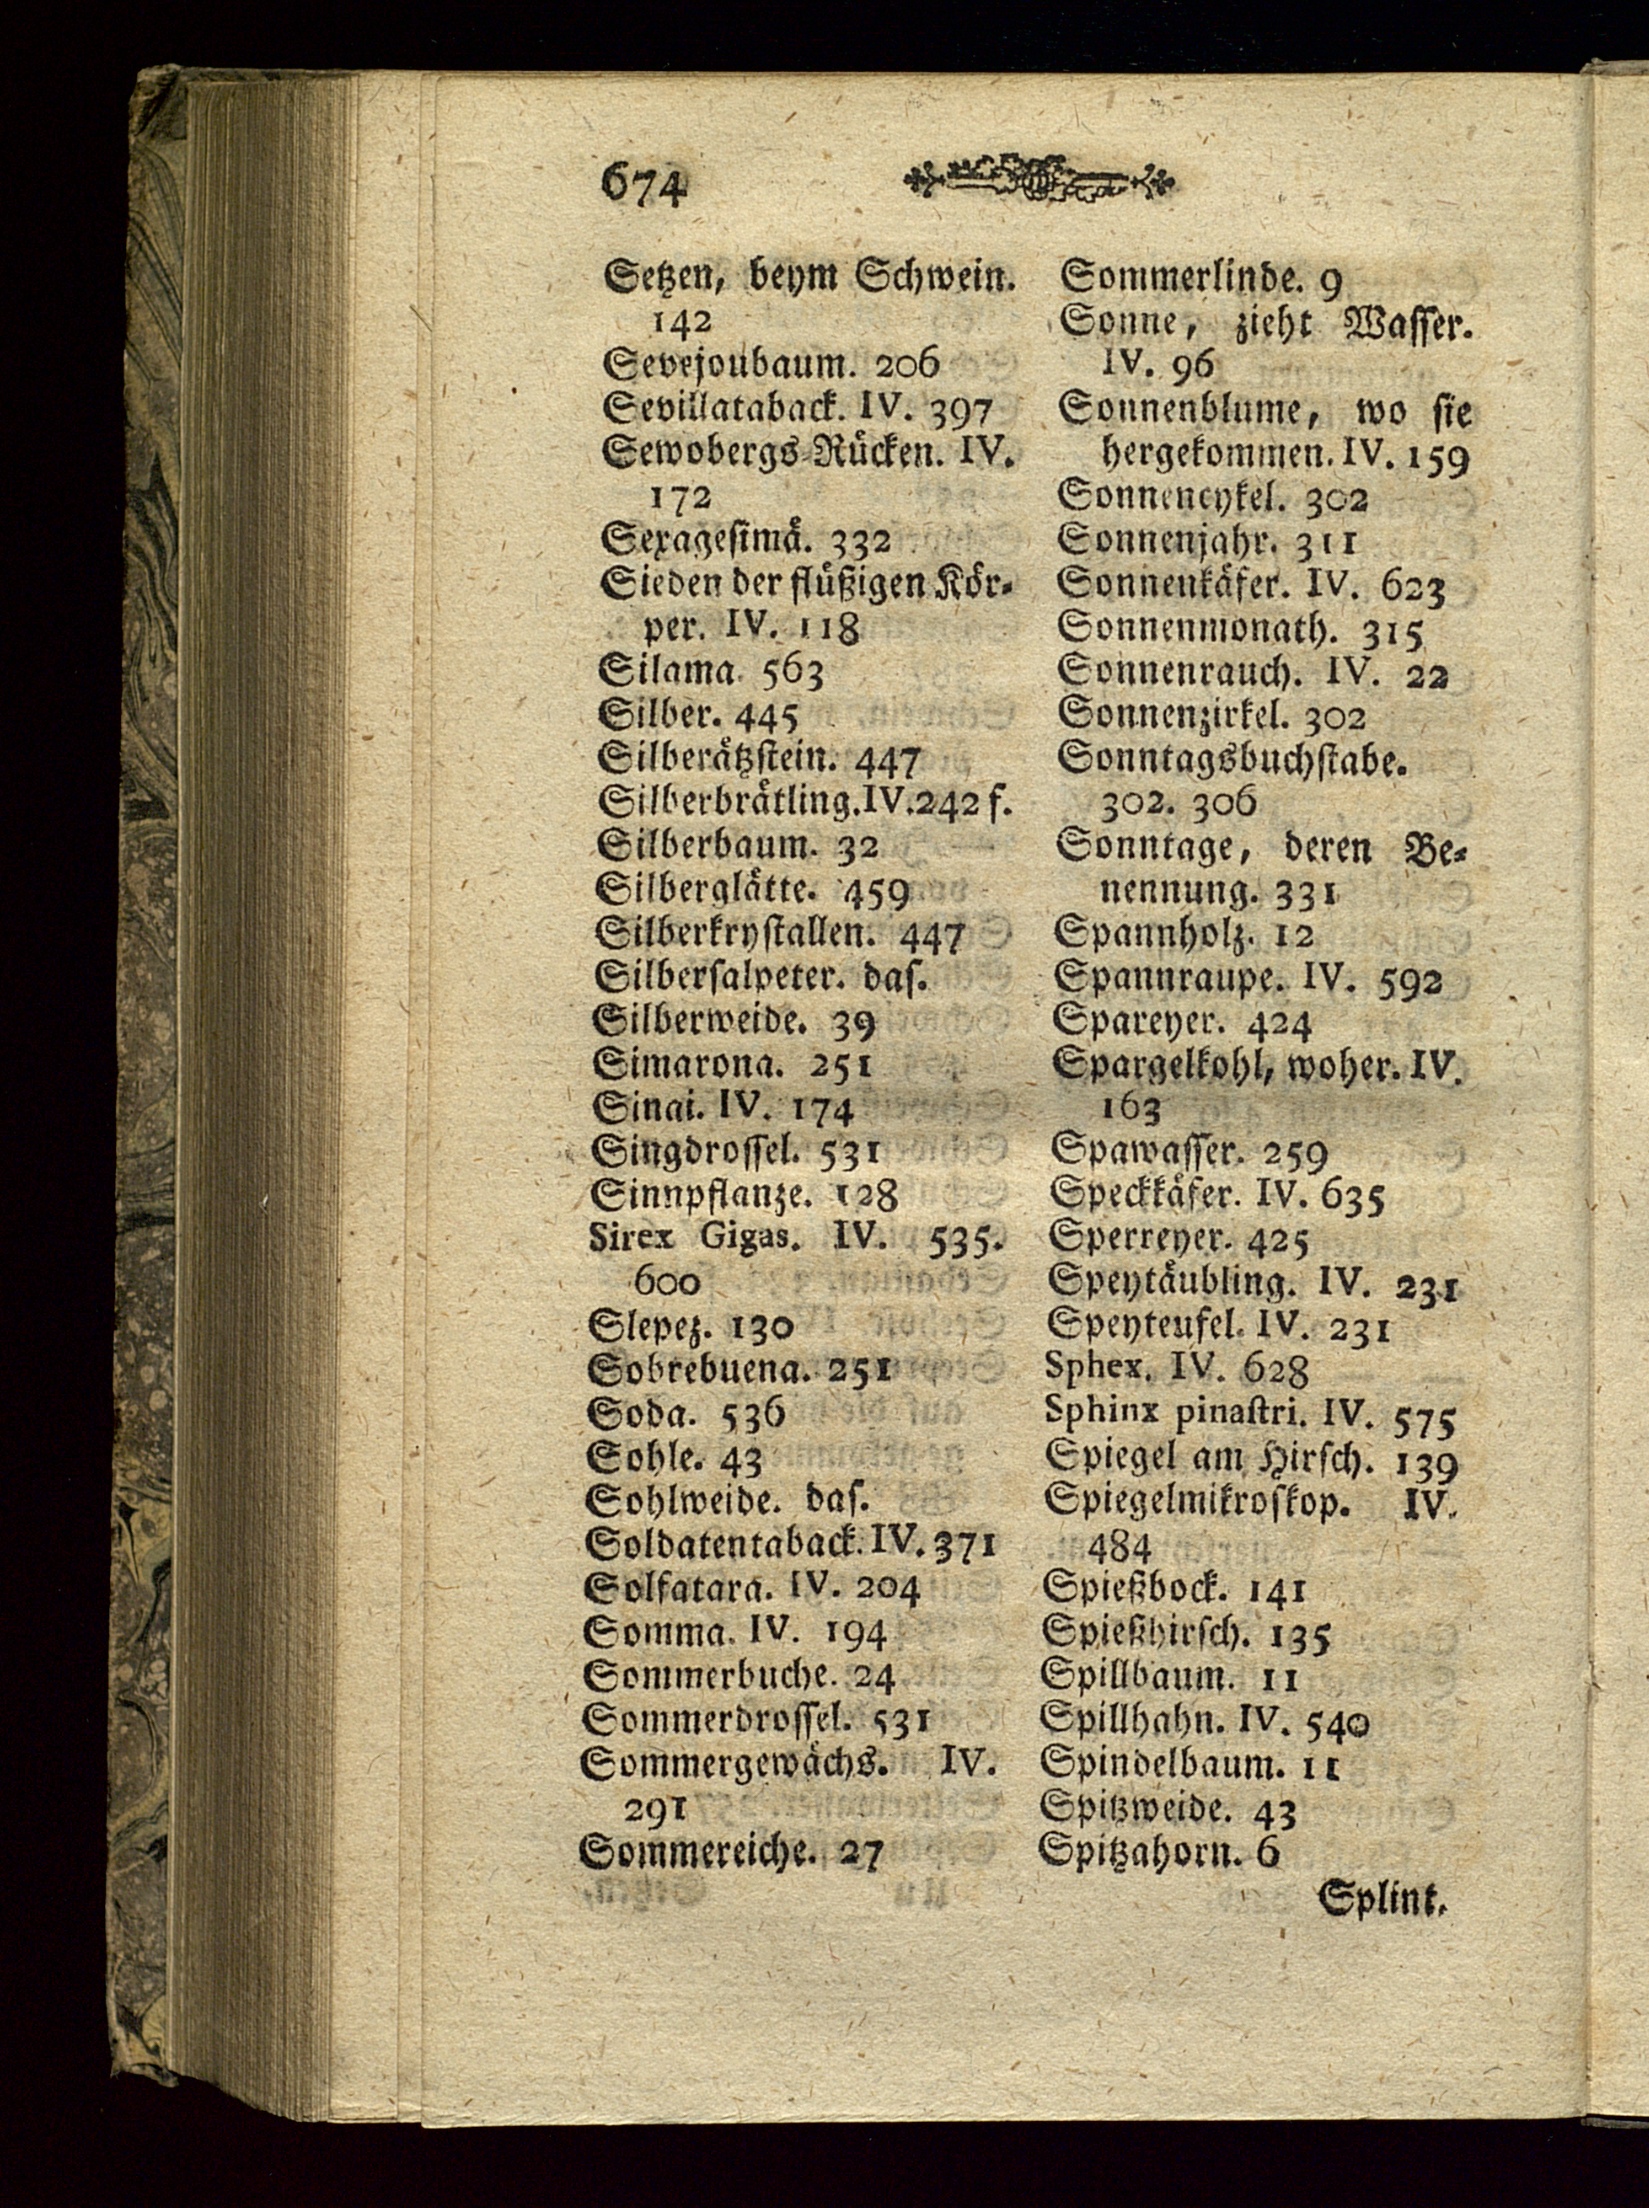 674
Setzen, beym Schwein.
142
Sevejoubaum. 206
Sevillataback. IV. 397
Sewobergs-Rücken. IV.
172
Sexagesimä. 332
Sieden der flüßigen Kör-
per. IV. 118
Silama. 563
Silber. 445
Silberätzstein. 447
Silberbrätling. IV. 242 f.
Silberbaum. 32
Silberglätte. 459
Silberkrystallen. 447
Silbersalpeter. das.
Silberweide. 39
Simarona. 251
Sinai. IV. 174
Singdrossel. 531
Sinnpflanze. 128
Sirex Gigas. IV. 535.
600
Slepez. 130
Sobrebuena. 251
Soda. 536
Sohle. 43
Sohlweide. das.
Soldatentaback. IV. 371
Solfatara. IV. 204
Somma. IV. 194
Sommerbuche. 24
Sommerdrossel. 531
Sommergewächs. IV.
291
Sommereiche. 27
Sommerlinde. 9
Sonne, zieht Wasser.
IV. 96
Sonnenblume, wo sie
hergekommen. IV. 159
Sonnencykel. 302
Sonnenjahr. 311
Sonnenkäfer. IV. 623
Sonnenmonath. 315
Sonnenrauch. IV. 22
Sonnenzirkel. 302
Sonntagsbuchstabe.
302. 306
Sonntage, deren Be-
nennung. 331
Spannholz. 12
Spannraupe. IV. 592
Spareyer. 424
Spargelkohl, woher. IV.
163
Spawasser. 259
Speckkäfer. IV. 635
Sperreyer. 425
Speytäubling. IV. 231
Speyteufel. IV. 231
Sphex. IV. 628
Sphinx pinastri. IV. 575
Spiegel am Hirsch. 139
Spiegelmikroskop. IV.
484
Spießbock. 141
Spießhirsch. 135
Spillbaum. 11
Spillhahn. IV. 540
Spindelbaum. 11
Spitzweide. 43
Spitzahorn. 6
Splint.